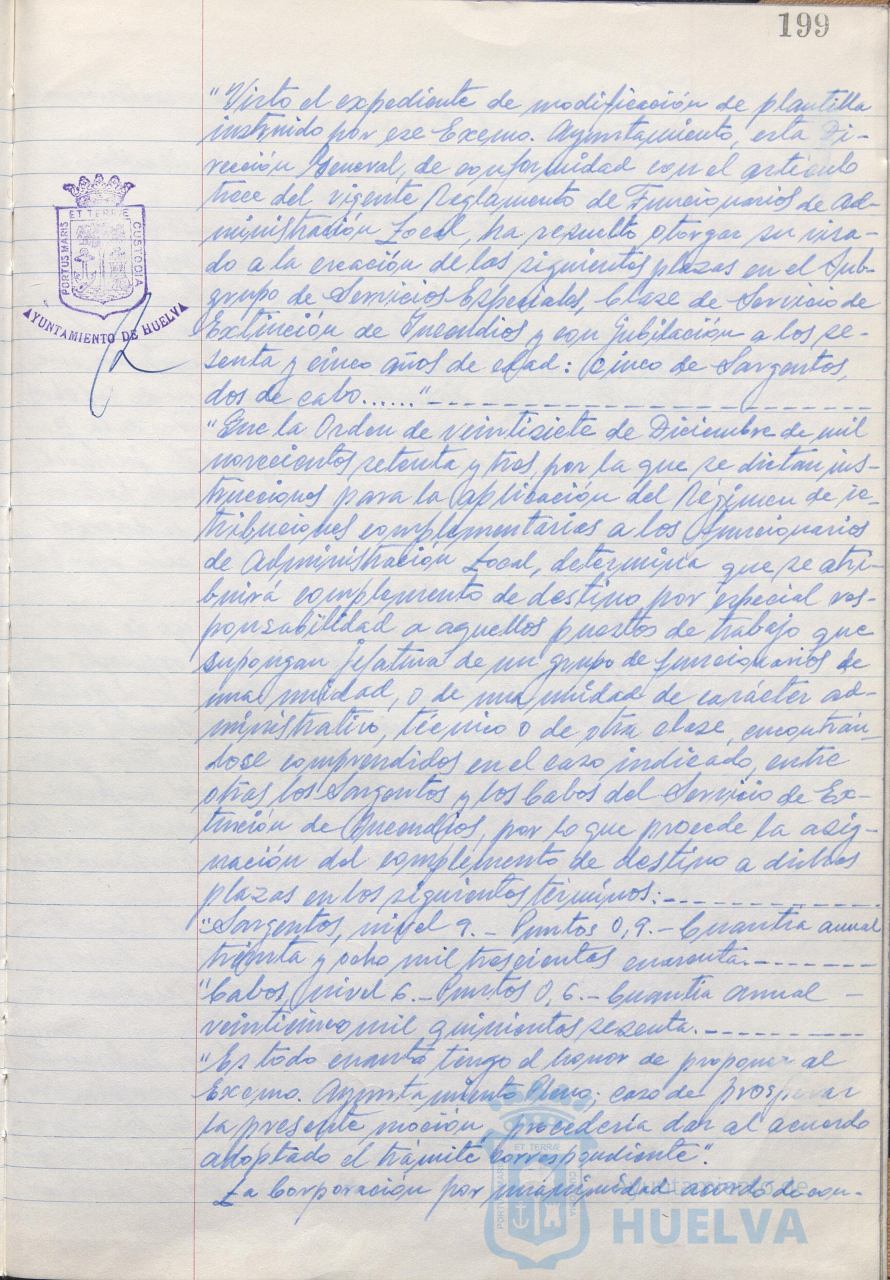 199
"Visto el expediente de modificación de plantilla
instruido por ese Excmo. Ayuntamiento, esta Di-
rección General, de conformidad con el artículo
trece del vigente Reglamento de Funcionarios de Ad-
ministración Local, ha resuelto otorgar su visa-
do a la creación de las siguientes plazas en el Sub-
grupo de Servicios Especiales, Clase de Servicio de
Extinción de Incendios y con jubilación a los se-
senta y cinco años de edad: Cinco de Sargentos,
dos de cabo......"
"Que la Orden de veintisiete de Diciembre de mil
novecientos setenta y tres, por la que se dictan ins-
trucciones para la aplicación del Régimen de re-
tribuciones complementarias a los funcionarios
de Administración Local, determina que se atri-
buirá complemento de destino por especial res-
ponsabilidad a aquellos puestos de trabajo que
supongan jefatura de un grupo de funcionarios de
una unidad, o de una unidad de carácter ad-
ministrativo, técnico o de otra clase, encontrán-
dose comprendidos en el caso indicado, entre
otras los Sargentos y los Cabos del Servicio de Ex-
tinción de Incendios, por lo que procede la asig-
nación del complemento de destino a dichas
plazas en los siguientes términos:
"Sargentos, nivel 9.- Puntos 0,9.- Cuantía anual
treinta y ocho mil trescientas cuarenta.
"Cabos, nivel 6.- Puntos 0,6.- Cuantía anual -
veinticinco mil quinientos sesenta.
"Es todo cuanto tengo el honor de proponer al
Excmo. Ayuntamiento Pleno; caso de prosperar
la presente moción, procedería dar al acuerdo
adoptado el trámite correspondiente".
La Corporación por unanimidad acordó de con-
PORTUS MARIS ET TERRÆ CUSTODIA
AYUNTAMIENTO DE HUELVA
Ayuntamiento de
HUELVA